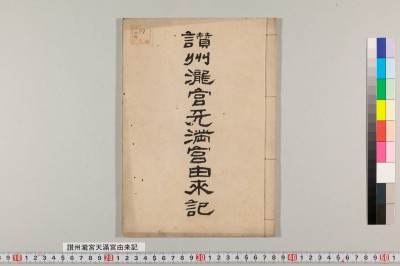 讃州瀧宮天満宮由来記
讃州瀧宮天滿宮由来記